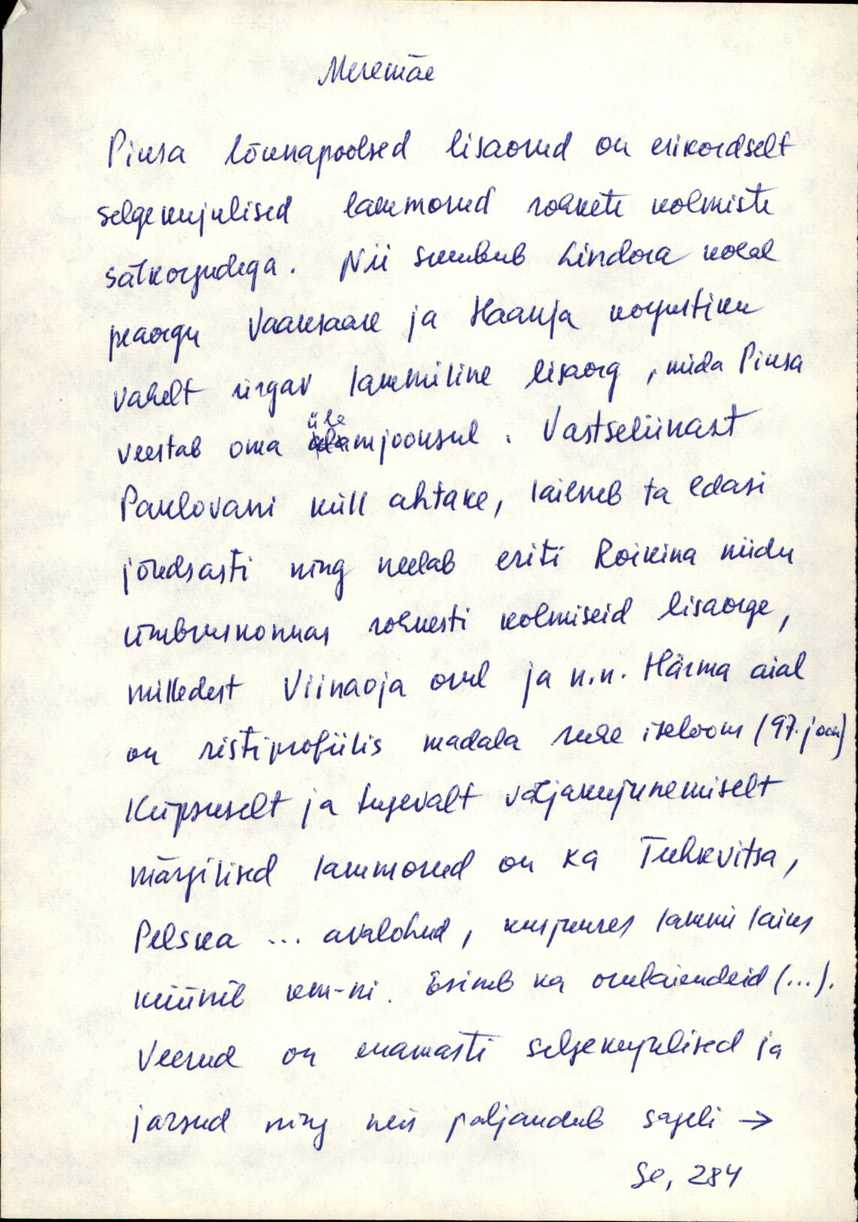 Meremäe
Piusa lõunapoolsed lisaorud on erikordselt
selgekujulised lammorud rohkete kolmiste
sälkorgudega. Nii suubub Lindora kohal
peaorgu Vaaksaare ja Haanja kõrgustiku
vahelt ürgav lammiline lisaorg, mida Piusa
veestab oma ülemjooksul. Vastseliinast
Paulovani küll ahtake, laieneb ta edasi
jõudsasti ning neelab eriti Roikina niidu
ümbruskonnas rohkesti kolmiseid lisaorge,
milledest Viinaoja orul ja n.n. Härma aial
on ristiprofiilis madala ruhe iseloom (97. joon)
Küpsuselt ja tugevalt väljakujunemiselt
märgilised lammorud on ka Tuhkvitsa,
Pelska ... avalohud, kusjuures lammi laius
küünib km-ni. Esineb ka orulaiendeid (...).
Veerud on enamasti selgekujulised ja
järsud ning neis paljandub sageli →
Se, 284